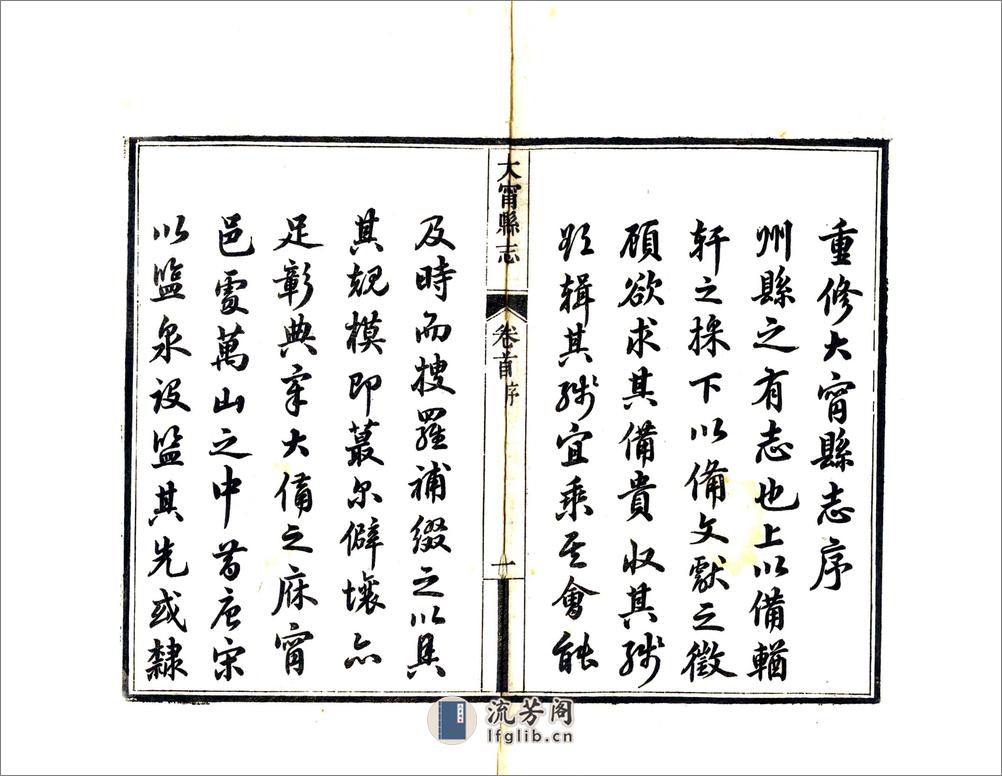 重修大甯縣志序
州縣之有志也上以備輶
軒之採下以備文獻之徵
顧欲求其備貴收其殘
欲輯其殘宜乘其會能
大甯縣志
卷首序
一
及時而搜羅補綴之以具
其規模即蕞尔僻壤亦
足彰典章大備之庥甯
邑處萬山之中昔唐宋
以監泉設監其先或隸
流芳阁
lfglib.cn